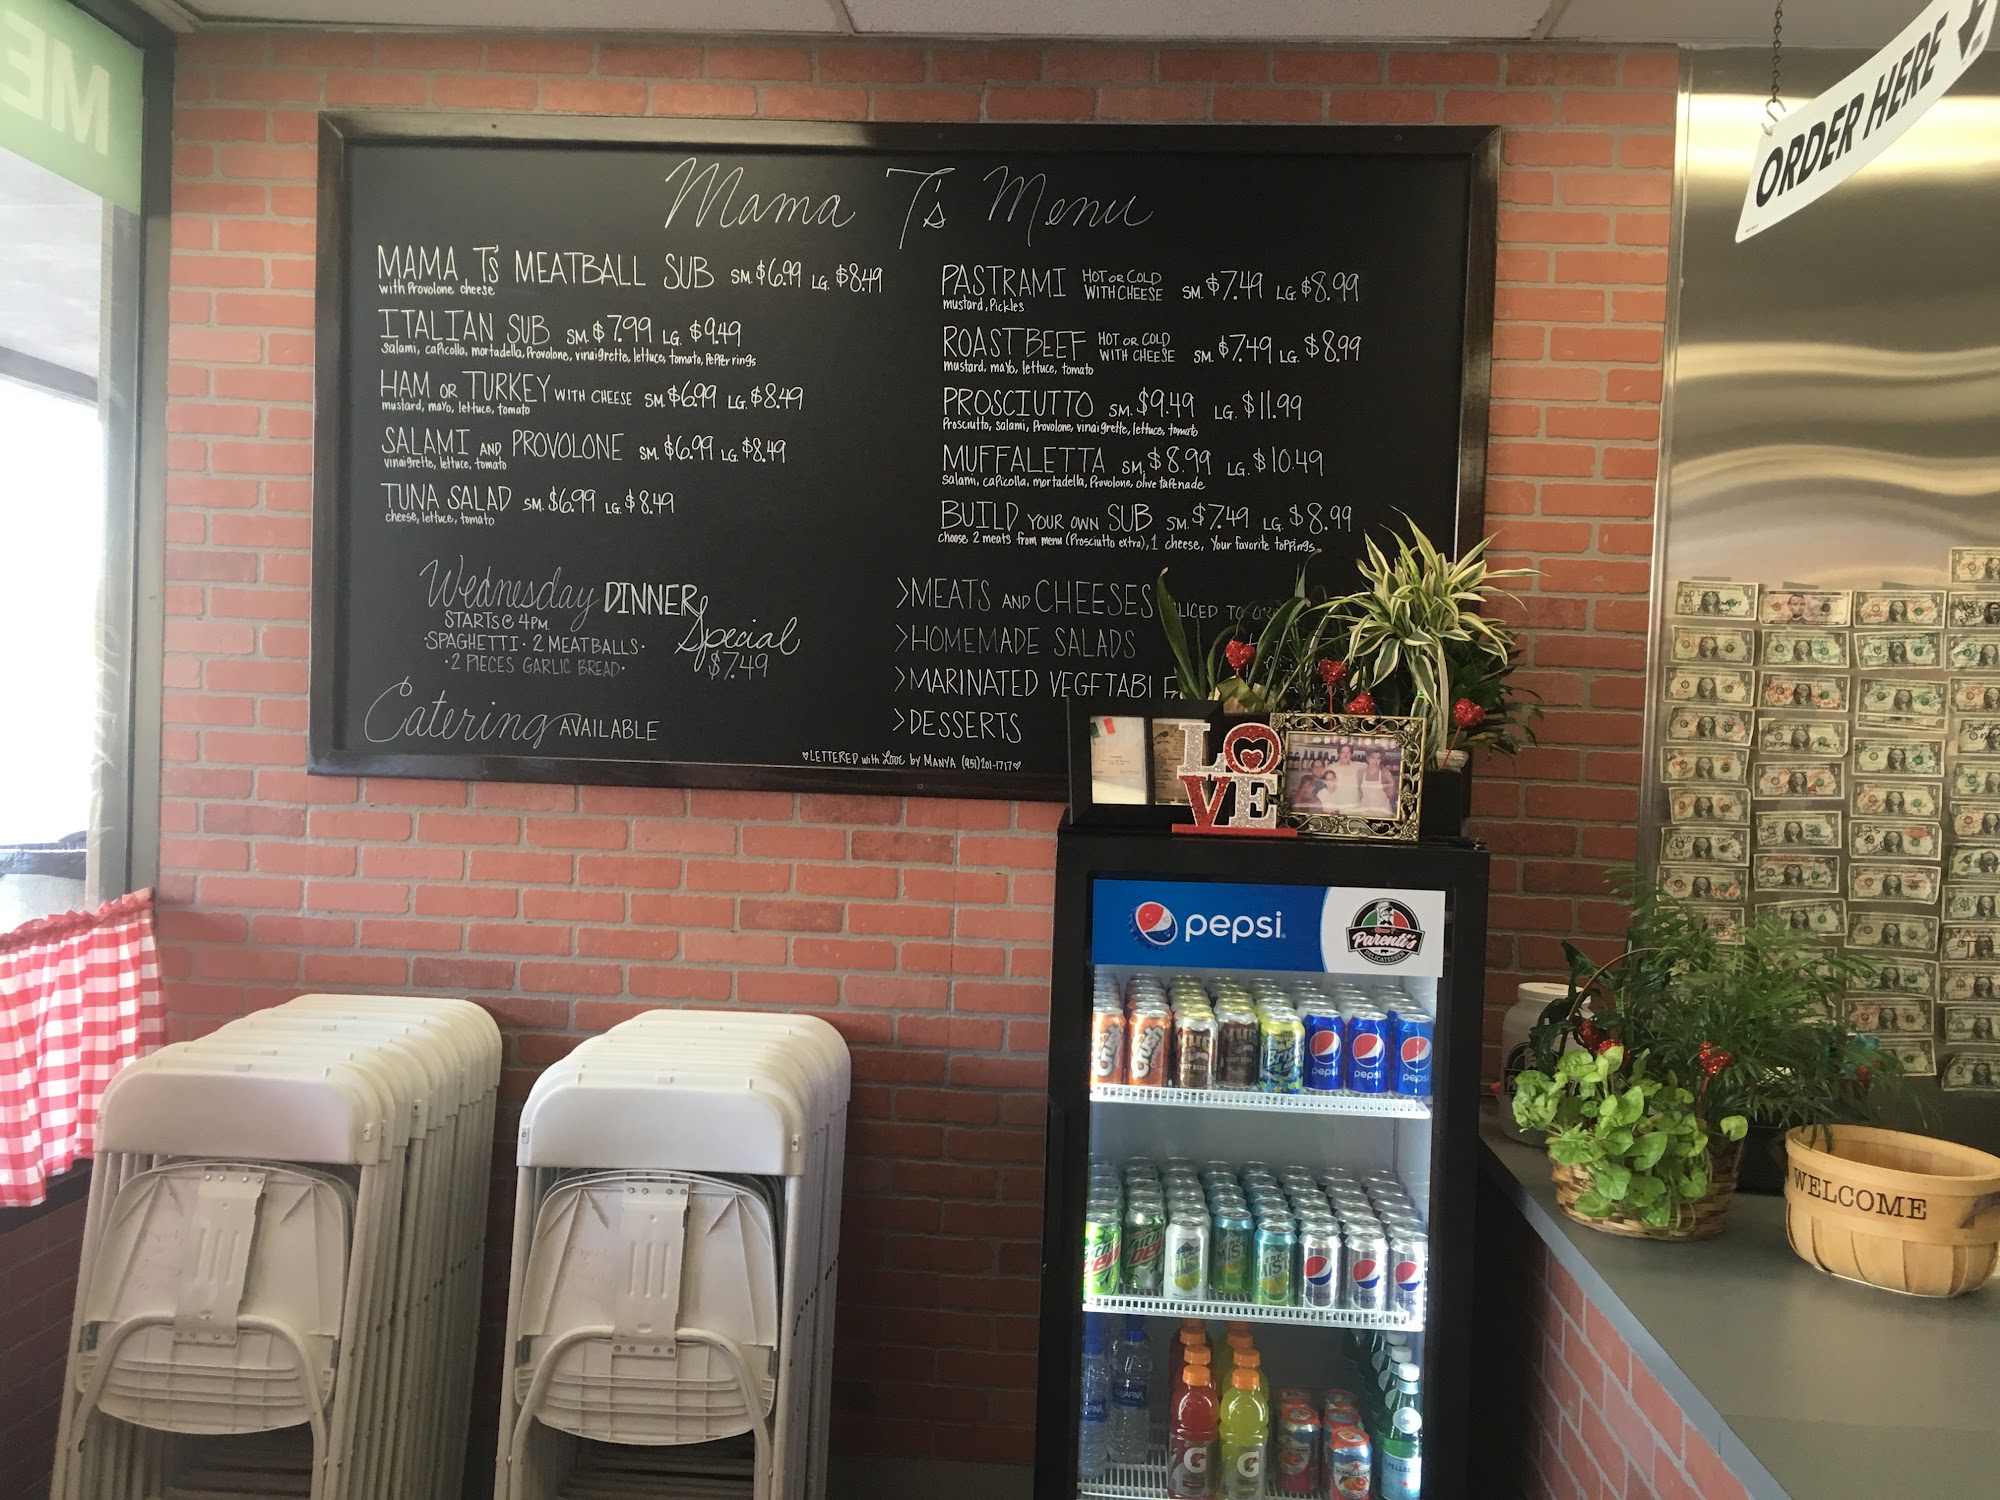 ME
ORDER HERE
Mama T's Menu
MAMA T's MEATBALL SUB SM. $6.99 LG. $8.49
with Provolone cheese
ITALIAN SUB SM. $7.99 LG. $9.49
salami, capicolla, mortadella, Provolone, vinaigrette, lettuce, tomato, pepper rings
HAM OR TURKEY WITH CHEESE SM. $6.99 LG. $8.49
mustard, mayo, lettuce, tomato
SALAMI AND PROVOLONE SM. $6.99 LG. $8.49
vinaigrette, lettuce, tomato
TUNA SALAD SM. $6.99 LG. $8.49
cheese, lettuce, tomato
Wednesday DINNER Special
STARTS @ 4PM
·SPAGHETTI · 2 MEATBALLS·
·2 PIECES GARLIC BREAD·
$7.49
Catering AVAILABLE
PASTRAMI HOT OR COLD WITH CHEESE SM. $7.49 LG. $8.99
mustard, Pickles
ROAST BEEF HOT OR COLD WITH CHEESE SM. $7.49 LG. $8.99
mustard, mayo, lettuce, tomato
PROSCIUTTO SM. $9.49 LG. $11.99
Prosciutto, salami, Provolone, vinaigrette, lettuce, tomato
MUFFALETTA SM. $8.99 LG. $10.49
salami, capicolla, mortadella, Provolone, olive tapenade
BUILD YOUR OWN SUB SM. $7.49 LG. $8.99
choose 2 meats from menu (Prosciutto extra), 1 cheese, Your favorite toppings
>MEATS AND CHEESES SLICED TO
>HOMEMADE SALADS
>MARINATED VEGETABLE
>DESSERTS
♡LETTERED with Love by MANYA (951)201-1717♡
LOVE
pepsi
Parenti's
DELICATESSEN
Crush
MUG
ROOT BEER
Brisk
pepsi
pepsi
pepsi
Mtn Dew
MIST
MIST
pepsi
pepsi
pepsi
AQUAFINA
G
G
WELCOME